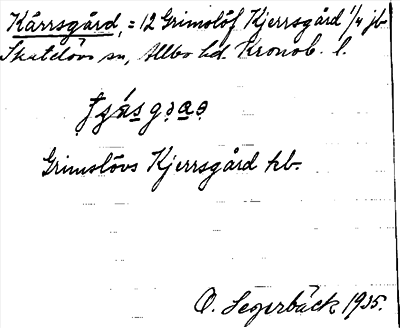 Kärrsgård, = 12 Grimslöf Kjerrsgård 1/4 jb
Skatelövs sn, Allbo hd. Kronob. l.
Grimslövs Kjerrsgård kb.
O. Segerbäck 1935.